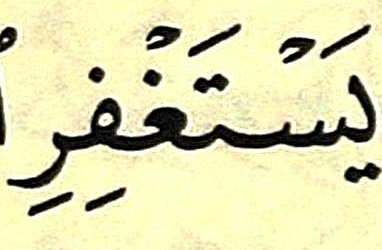 يَسْتَغْفِرِ